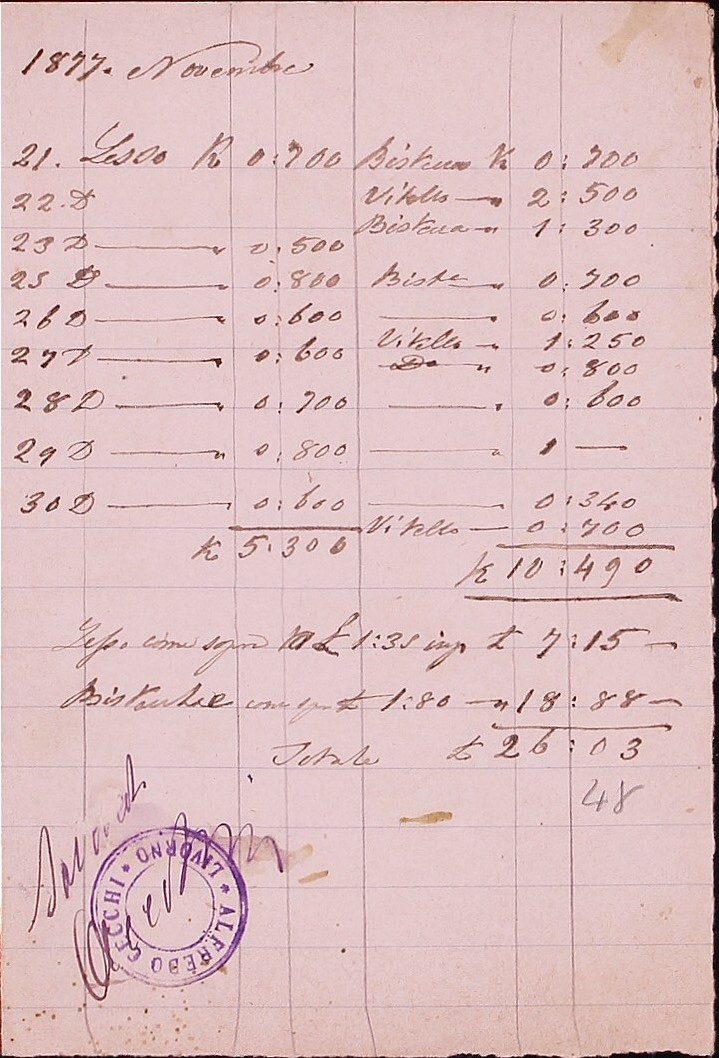 1877. Novembre
21. Lesso K 0:700 Bistecca K 0:700
22. D Vitello — 2:500
Bistecca — „ 1:300
23 D — „ 0:500
25 D — „ 0:800 Biste — „ 0:700
26 D — „ 0:600 — „ 0:600
Vitello — 1:250
27 D — „ 0:600 Do — „ 0:800
28 D — „ 0:700 — „ 0:600
29 D — „ 0:800 — „ 1 —
30 D — „ 0:600 — 0:340
Vitello — 0:700
K 5:300 K 10:490
Lesso come sopra £ 1:35 imp £ 7:15 —
Bistecche come £ 1:80 — „ 18:88 —
Totale £ 26:03
48
ALFREDO CECCHI * LIVORNO *